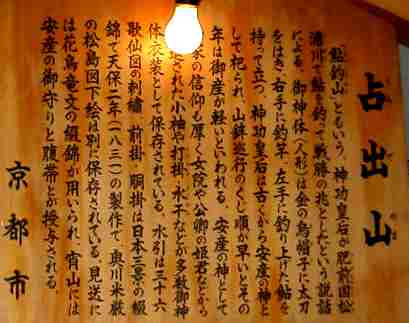 占出山
「鮎釣山」ともいう。神功皇后が肥前国松
浦川で鮎を釣って戦勝の兆としたという説話
による。御神体(人形)は金の烏帽子に太刀
をはき、右手に釣竿、左手に釣り上げた鮎を
持って立つ。神功皇后は古くから安産の神と
して祀られ、山鉾巡行のくじ順が早いとその
年は御産が軽いといわれる。安産の神として
の信仰も厚く女院や公卿の姫君などから
された小袖、打掛、水干などが多数御神
体衣装として保存されている。水引は三十六
歌仙図の刺繍、前掛、胴掛は日本三景の綴
錦で天保二年(一八三一)の製作で、奥川米厳
の松島図下絵は別に保存されている。見送に
は花鳥竜文の綴錦が用いられ、宵山には
安産の御守りと腹帯とが授与される。
京都市